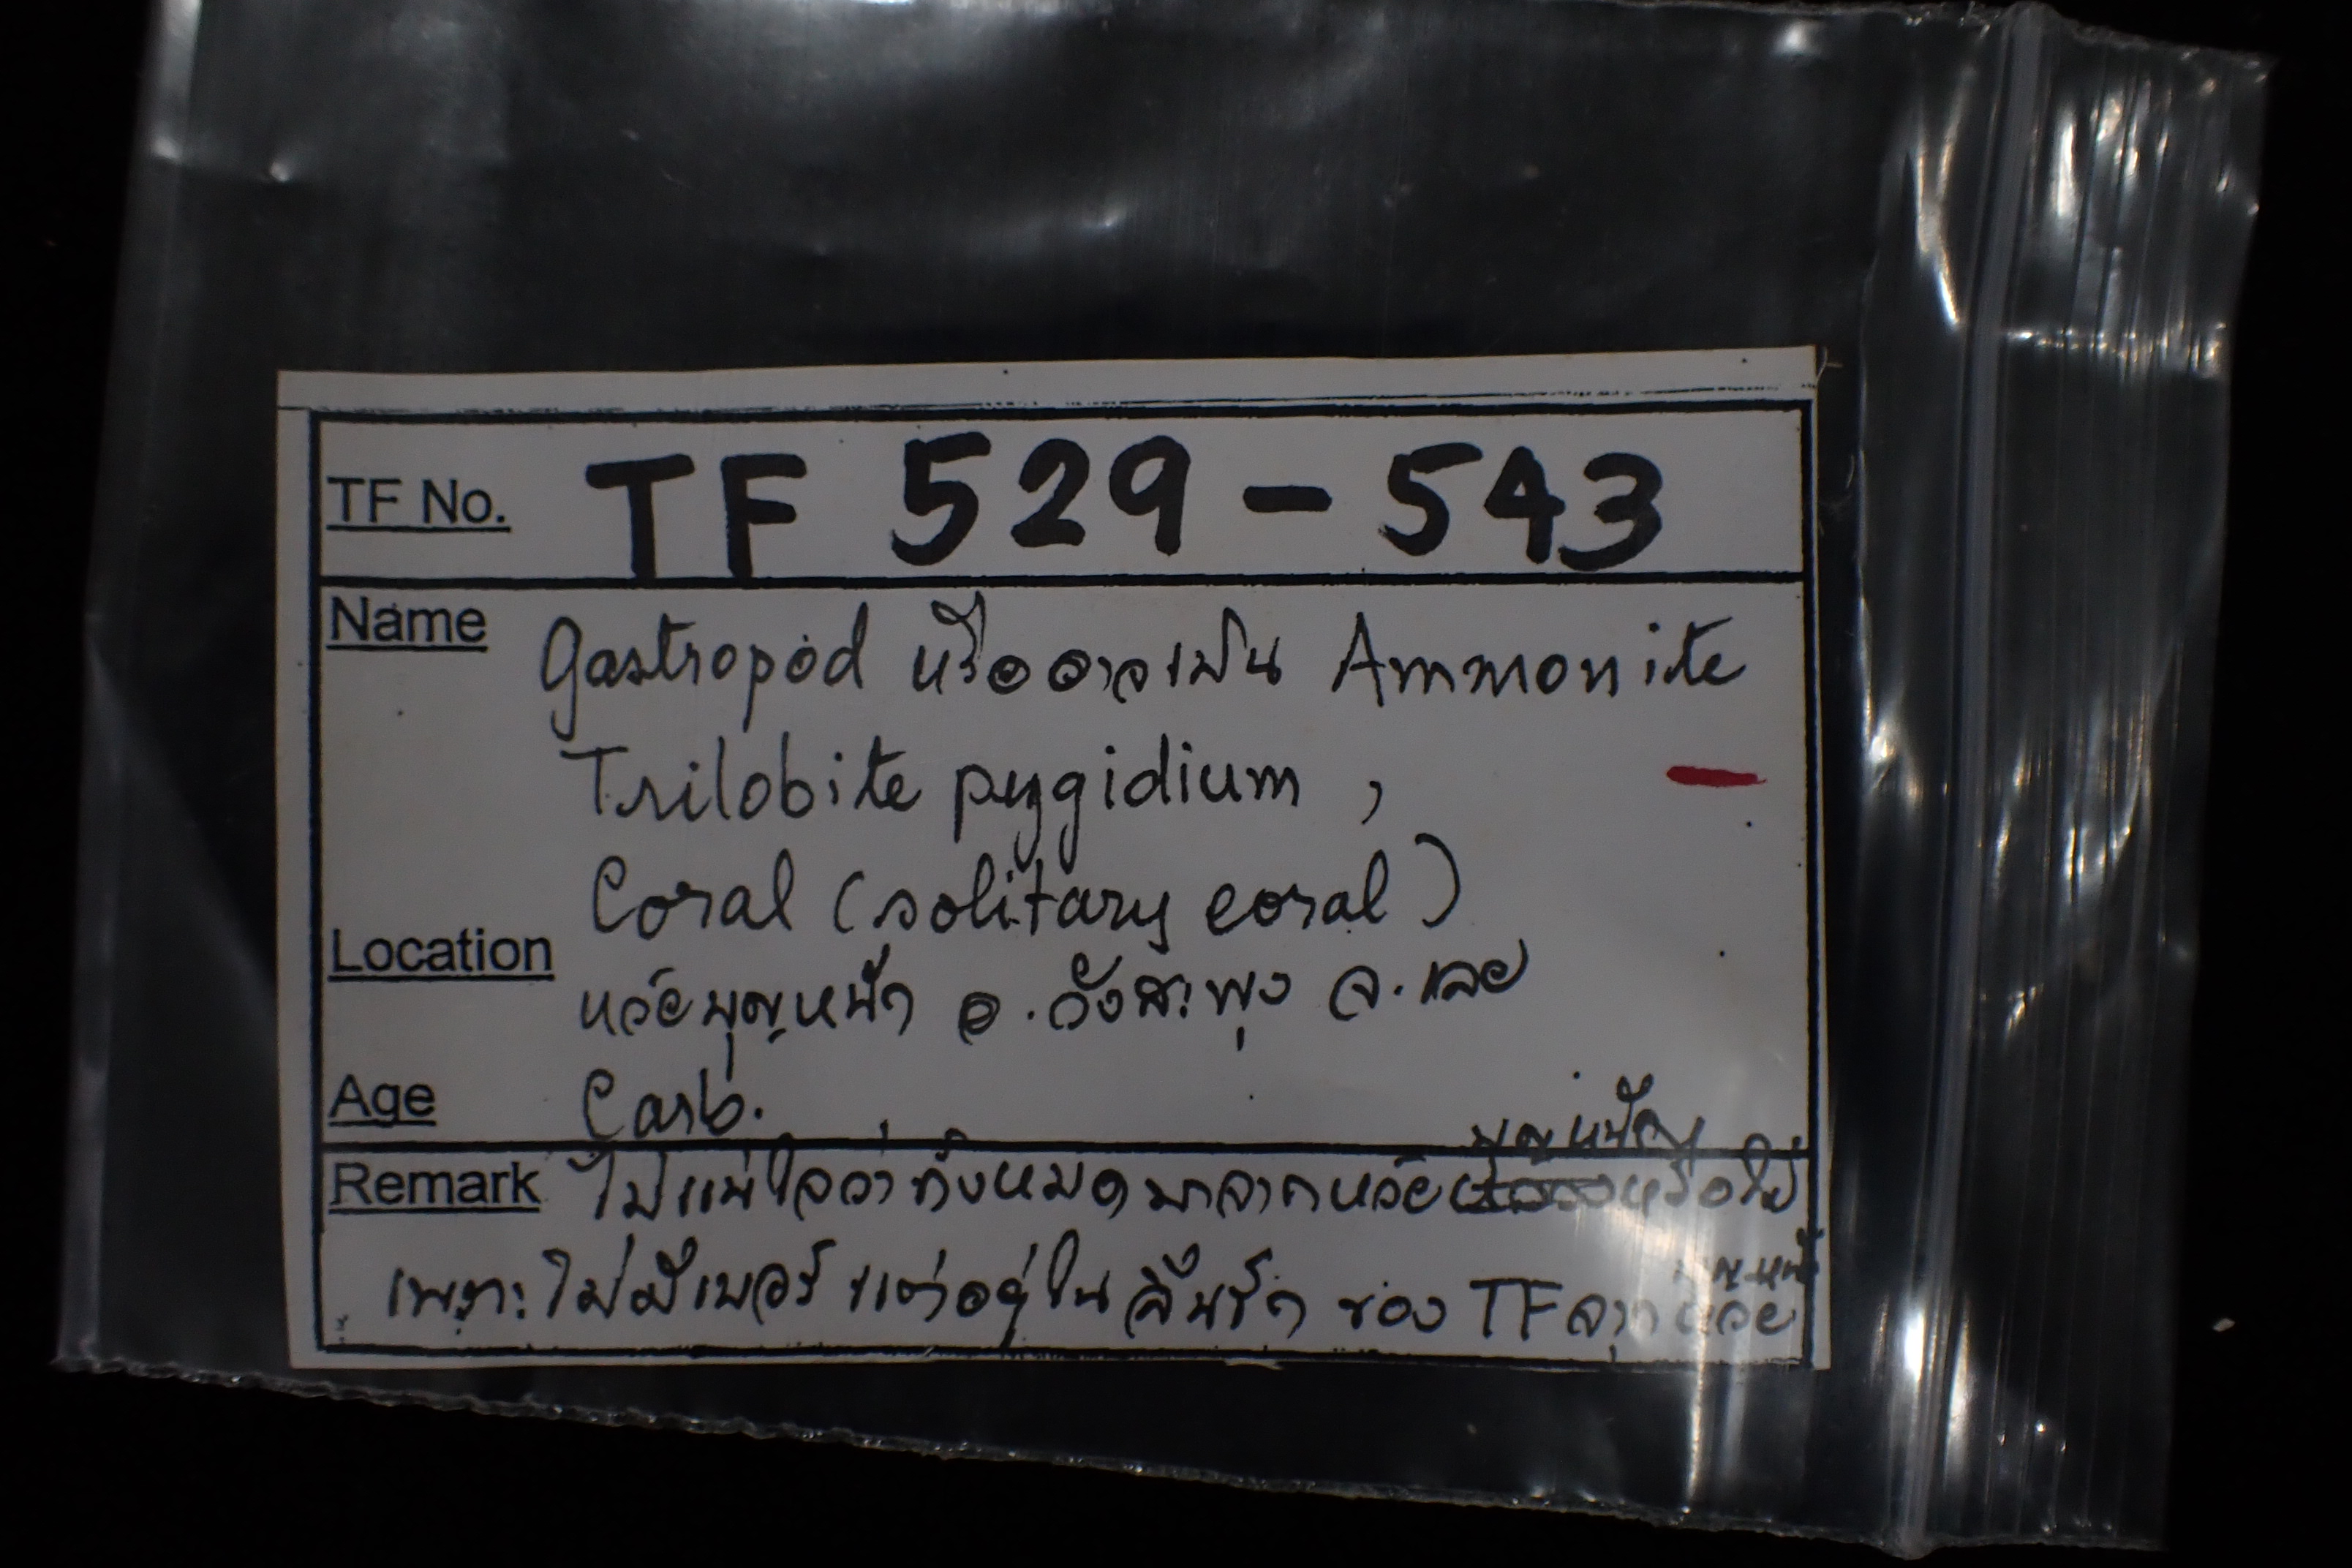 TF No. TF 529 - 543
Name Gastropod หรืออาจเป็น Ammonite
Trilobite pygidium ,
Coral (solitary coral)
Location
ห้วย อ.วังสะพุง จ.เลย
Age Carb.
Remark ไม่แน่ใจว่าทั้งหมดมาจากห้วย หรือไม่
เพราะไม่มีเบอร์ แต่อยู่ใน ลิ้นชัก ของ TF จากห้วย